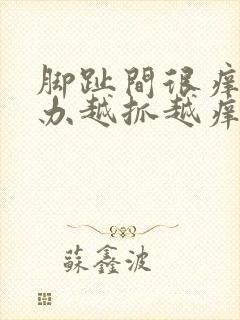 脚趾間很痒
办越抓越痒
蘇鑫波